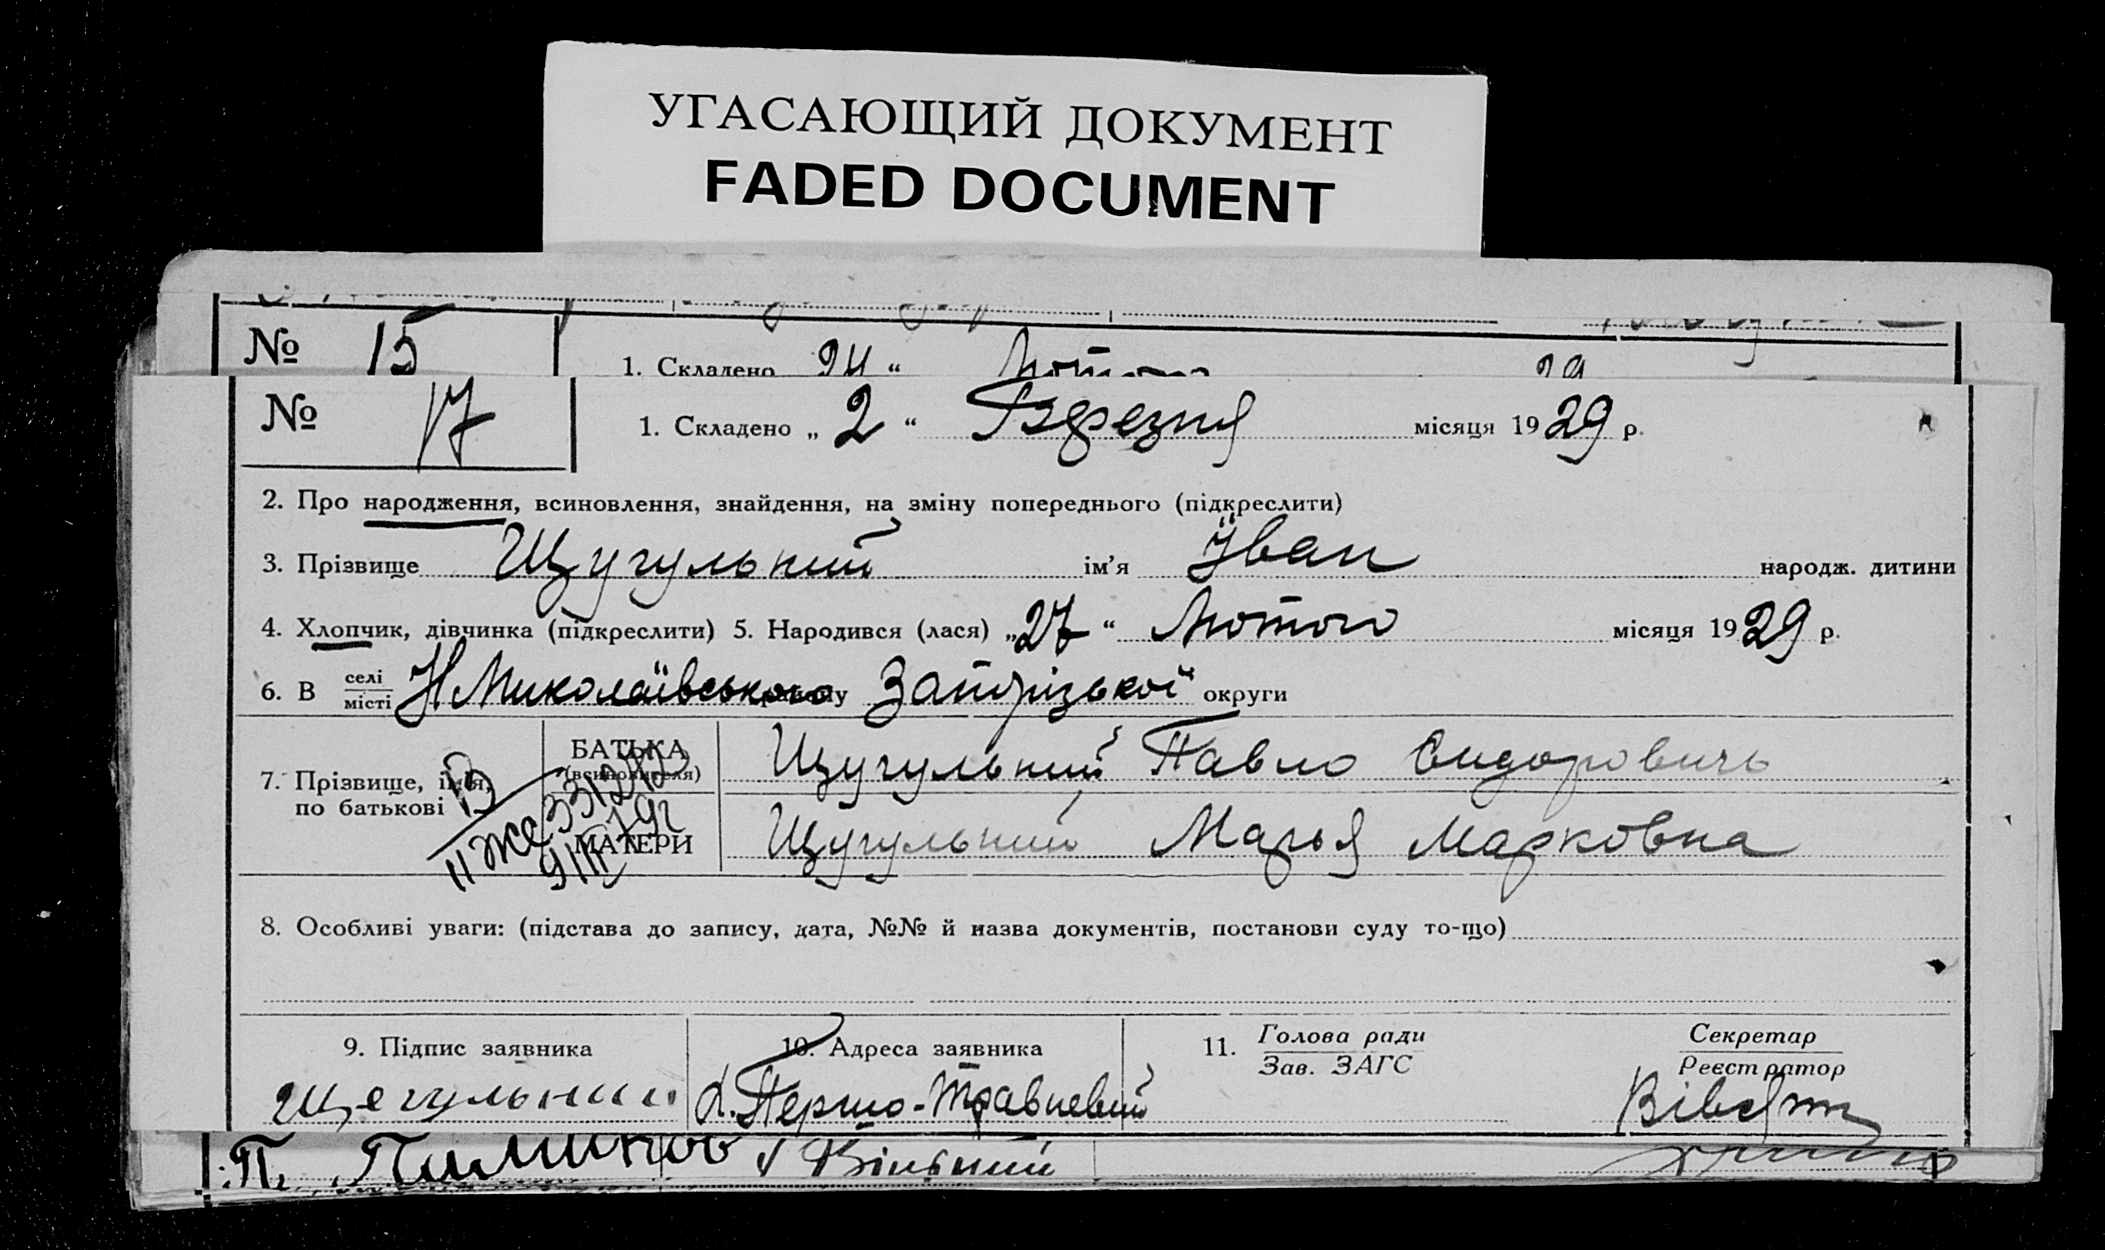 УГАСАЮЩИЙ ДОКУМЕНТ
FADED DOCUMENT
№ 15
1. Складено 24 “ Лютого 29
№ 17
1. Складено „ 2 “ Березня місяця 1929 р.
2. Про народження, всиновлення, знайдення, на зміну попереднього (підкреслити)
3. Прізвище Щугульний ім’я Їван народж. дитини
4. Хлопчик, дівчинка (підкреслити) 5. Народився (лася) „27“ Лютого місяця 1929 р.
6. В селі місті Н Миколаївського району Запорізької округи
7. Прізвище, ім’я, по батькові
БАТЬКА (всиновителя) Щугульний Павло Сидоровичь
МАТЕРИ Щугульний Марья Марковна
8. Особливі уваги: (підстава до запису, дата, №№ й назва документів, постанови суду то-що)
9. Підпис заявника
10. Адреса заявника
11. Голова ради Зав. ЗАГС
Секретар Реєстратор
Щегульний
х. Першо-Травневий
П.